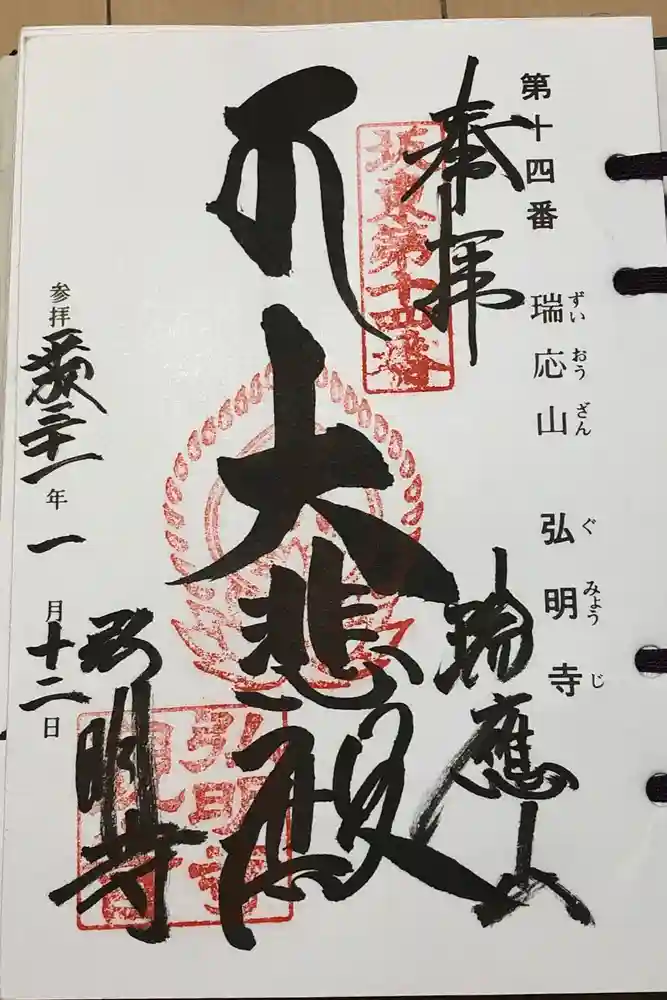 第十四番 瑞応山 弘明寺
ずいおうざん ぐみょうじ
奉拝
坂東第十四番
瑞應山
大悲殿
弘明寺
参拝平成三十一年一月十二日
弘明寺